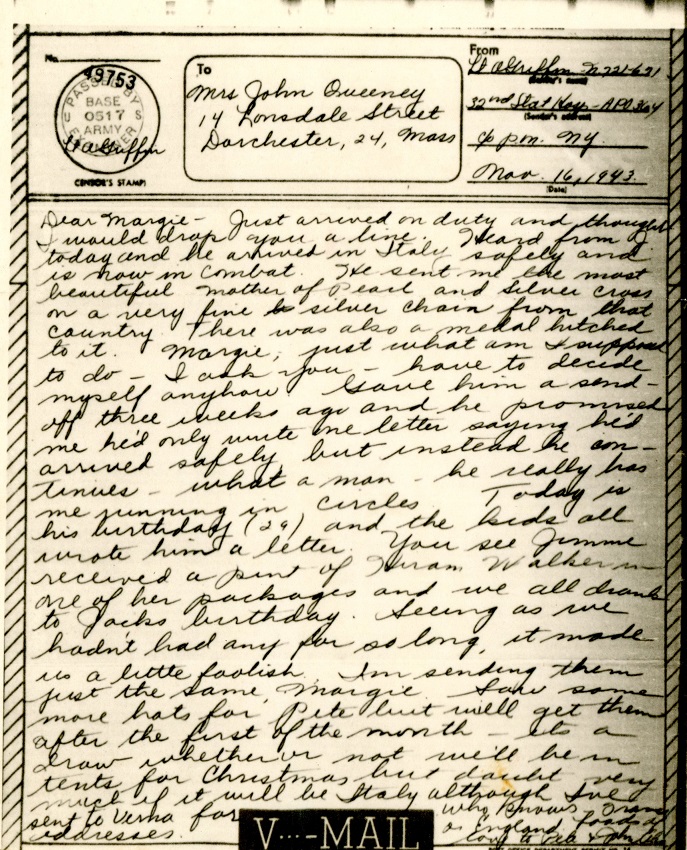 No.
49753
PASSED BY
BASE
0517
ARMY
EXAMINER
U S
Lt A Griffin
CENSOR'S STAMP
To
Mrs John Queeney
14 Lonsdale Street
Dorchester, 24, Mass
From
Lt A Griffin N721671
(Sender's name)
32nd Stat Hosp - APO 364
(Sender's address)
c/o p.m. N.Y.
Nov. 16, 1943
(Date)
Dear Margie - Just arrived on duty and thought
I would drop you a line. Heard from J
today and he arrived in Italy safely and
is now in combat. He sent me the most
beautiful mother of Pearl and silver cross
on a very fine silver chain from that
country. There was also a medal hitched
to it. Margie, just what am I supposed
to do - I ask you - have to decide
myself anyhow. Gave him a send-
off three weeks ago and he promised
me he'd only write one letter saying he'd
arrived safely but instead he con-
tinues - what a man - he really has
me running in circles. Today is
his birthday (29) and the kids all
wrote him a letter. You see Jimmie
received a pint of Hiram Walker in
one of her packages and we all drank
to Jacks birthday. Seeing as we
hadn't had any for so long, it made
us a little foolish. Im sending them
just the same, Margie. Saw some
more hats for Pete but we'll get them
after the first of the month - its a
draw whether or not we'll be in
tents for Christmas but doubt very
much if it will be Italy although I've
sent to Verna for
addresses.
who knows,
or England, loads of
love to Pete + John
V···-MAIL